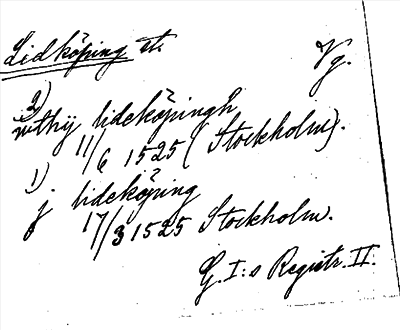 Lidköping st. Vg.
2)
uthij lideköpingh
11/6 1525 (Stockholm).
1)
j lideköping
17/3 1525 Stockholm.
G. I:s Registr. II.